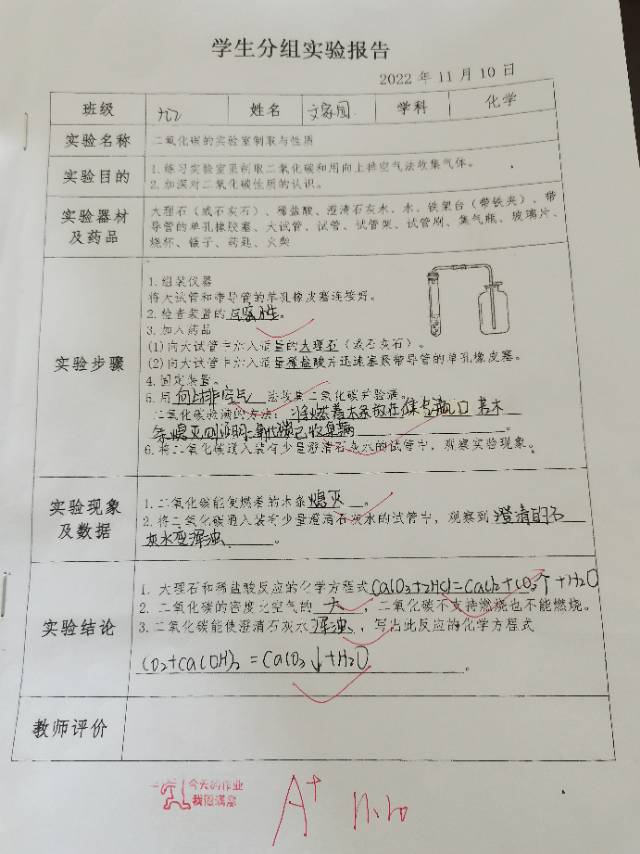 学生分组实验报告
2022 年 11 月 10 日
班级 九2 姓名 文家园 学科 化学
实验名称 二氧化碳的实验室制取与性质
实验目的 1.练习实验室里制取二氧化碳和用向上排空气法收集气体。
2.加深对二氧化碳性质的认识。
实验器材及药品 大理石(或石灰石)、稀盐酸、澄清石灰水、水、铁架台(带铁夹)、带
导管的单孔橡胶塞、大试管、试管、试管架、试管刷、集气瓶、玻璃片、
烧杯、镊子、药匙、火柴
实验步骤 1.组装仪器
将大试管和带导管的单孔橡皮塞连接好。
2.检查装置的气密性。
3.加入药品
(1)向大试管中加入适量的大理石(或石灰石)。
(2)向大试管中加入适量稀盐酸并迅速塞紧带导管的单孔橡皮塞。
4.固定装置。
5.用向上排空气法收集二氧化碳并验满。
二氧化碳验满的方法:将燃着木条放在集气瓶口 若木
条熄灭则证明二氧化碳已收集满。
6.将二氧化碳通入装有少量澄清石灰水的试管中,观察实验现象。
实验现象及数据 1.二氧化碳能使燃着的木条熄灭。
2.将二氧化碳通入装有少量澄清石灰水的试管中,观察到澄清的石
灰水变浑浊。
实验结论 1. 大理石和稀盐酸反应的化学方程式CaCO3+2HCl=CaCl2+CO2↑+H2O
2. 二氧化碳的密度比空气的大,二氧化碳不支持燃烧也不能燃烧。
3.二氧化碳能使澄清石灰水浑浊,写出此反应的化学方程式
CO2+Ca(OH)2=CaCO3↓+H2O。
教师评价
今天的作业
我很满意
A+ 11.10